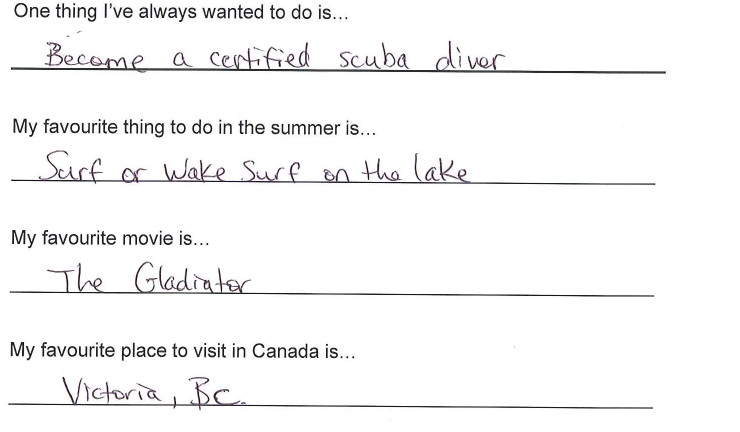 One thing I've always wanted to do is…
Become a certified scuba diver
My favourite thing to do in the summer is…
Surf or Wake Surf on the lake
My favourite movie is…
The Gladiator
My favourite place to visit in Canada is…
Victoria, BC.